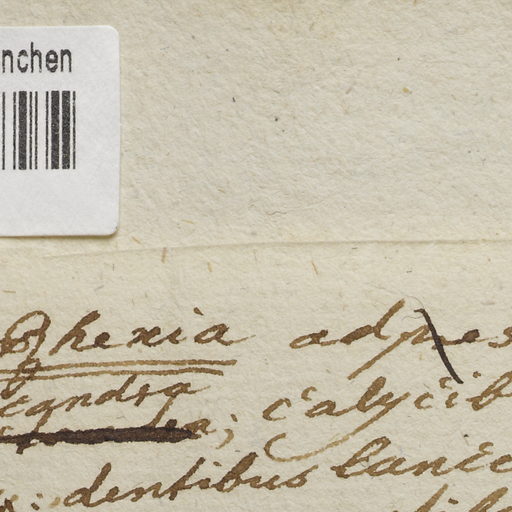 nchen
Rhexia adpres
candra
calycib
dentibus lance